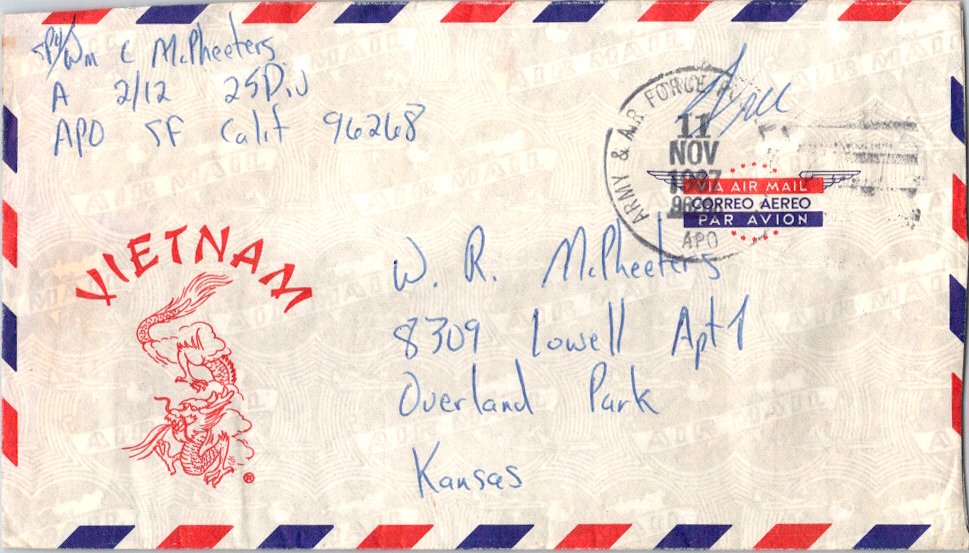 SP4/Wm C McPheeters
A 2/12 25Div
APO SF Calif 96268
Free
ARMY & AIR FORCE
11
NOV
1967
APO
VIA AIR MAIL
CORREO AEREO
PAR AVION
VIETNAM
W. R. McPheeters
8309 Lowell Apt 1
Overland Park
Kansas
®